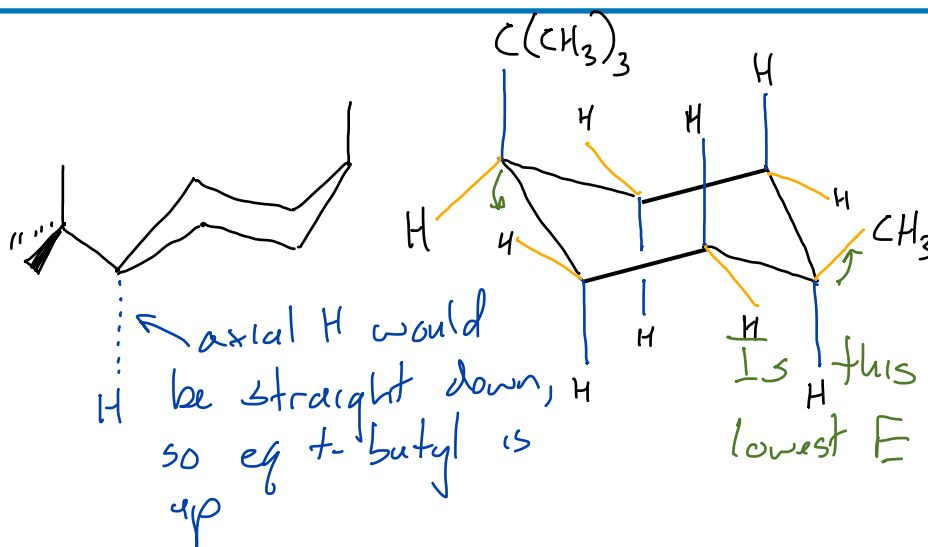 C(CH3)3
H
H
H
H
H
H
CH3
H
H
H
H
H
axial H would
be straight down,
so eq t-butyl is
up
H
Is this
lowest E